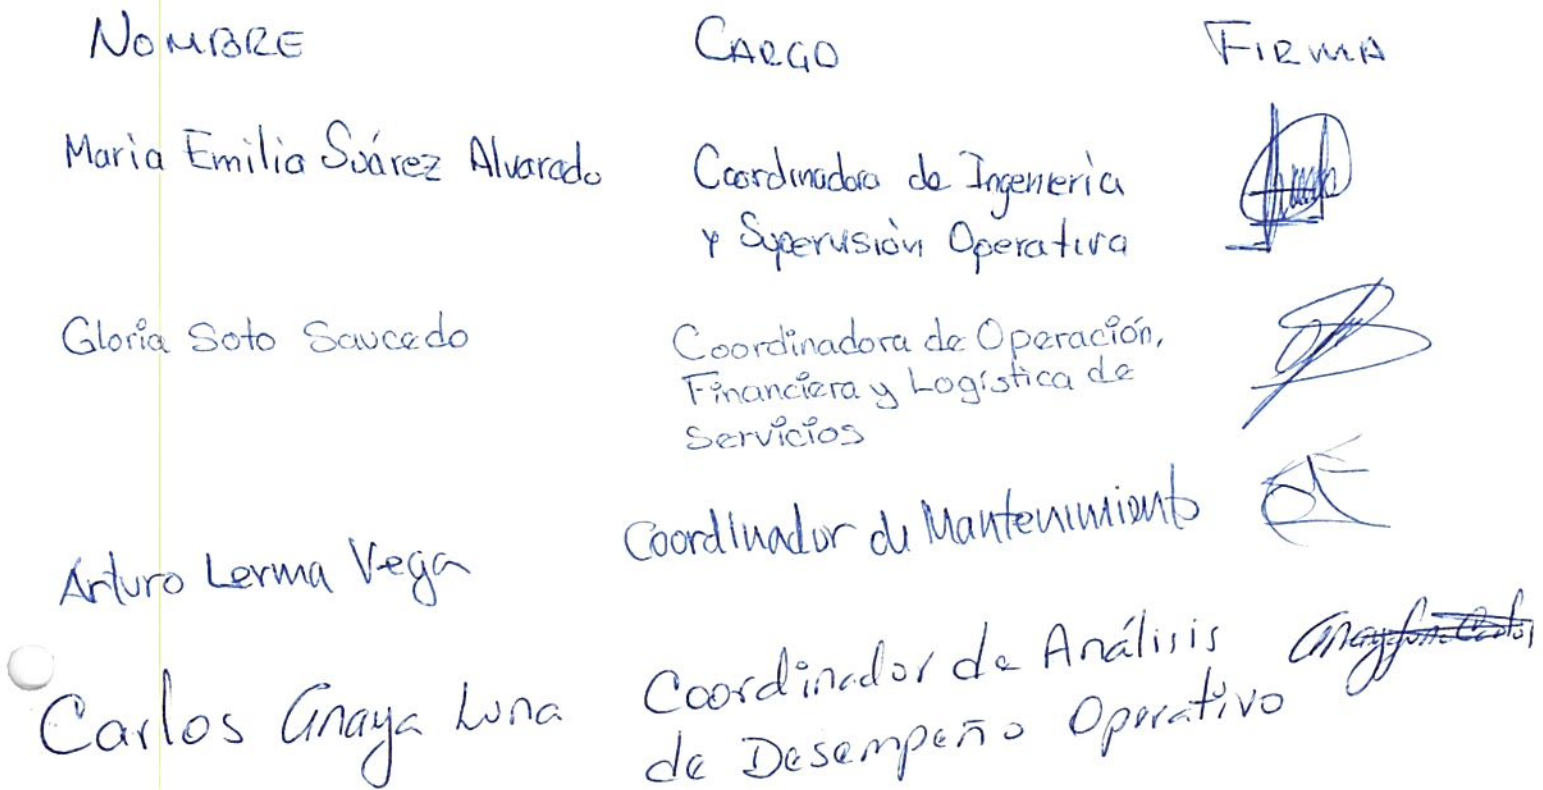 NOMBRE CARGO FIRMA
Maria Emilia Suárez Alvarado Coordinadora de Ingenieria
y Supervisión Operativa
Gloria Soto Saucedo Coordinadora de Operación,
Financiera y Logística de
Servicios
Arturo Lerma Vega Coordinador de Mantenimiento
Carlos Anaya Luna Coordinador de Análisis
de Desempeño Operativo